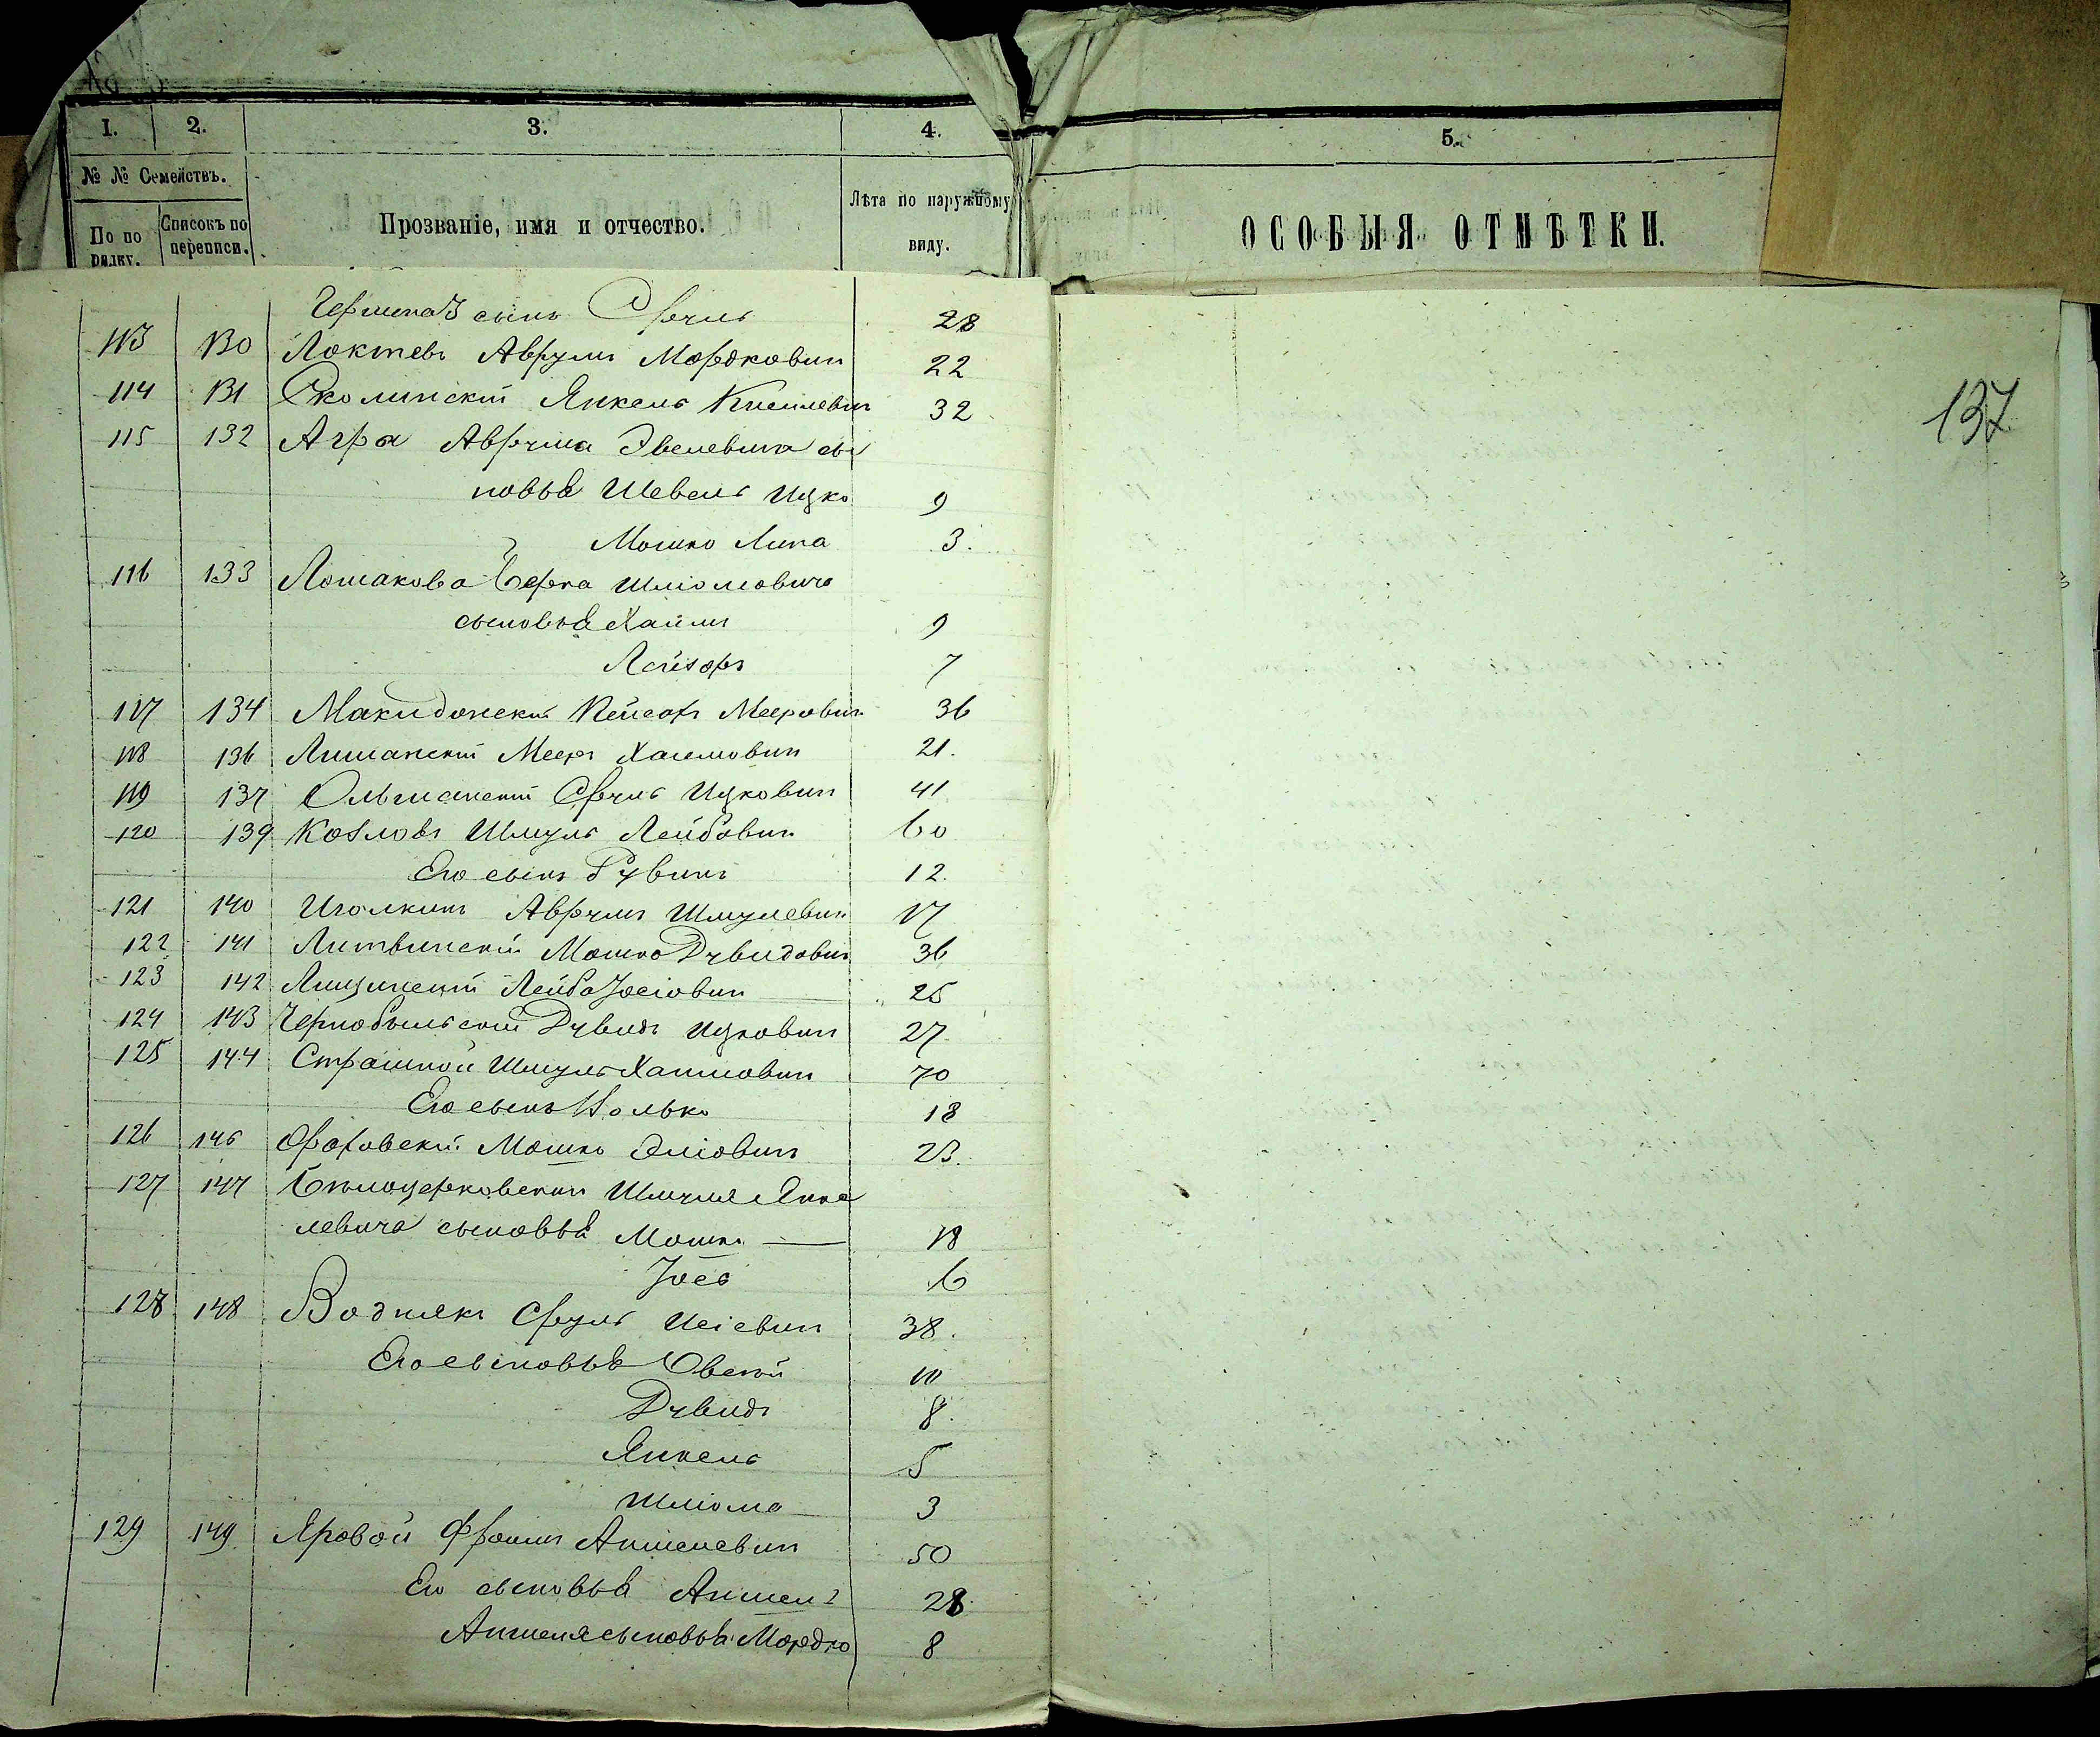 1. 2. 3. 4. 5.
№ № Семействъ.
По по рядку. Списокъ по переписи. Прозваніе, имя и отчество. Лѣта по наружному виду. ОСОБЫЯ ОТМѢТКИ.
137
сынъ Сруль 28
113 130 Локтевъ Аврумъ Мордковичъ 22
114 131 Сколинскій Янкель 32
115 132 Агра Аврума Эвелевича сы
новья Шевель Ицко 9
Мошко Липа 3.
116 133 Лошакова Берка Шліомовича
сыновья Хаимъ 9
Лейзоръ 7
117 134 Макидонскій Лейзоръ Мееровичъ 36
118 136 Лиманскій Мееръ Хаимовичъ 21.
119 137 Ольшанскій Сруль Ицковичъ 41
120 139 Козловъ Шмуль Лейбовичъ 60
Его сынъ Рувинъ 12.
121 140 Иголкинъ Аврумъ Шмулевичъ 17
122 141 Литвинскій Мошко Дувидовичъ 36
123 142 Лищинскій Лейба Іосіовичъ 25
124 143 Чернобыльскій Дувидъ Ицковичъ 27
125 144 Страшной Шмуль Хаимовичъ 70
Его сынъ Нолько 18
126 146 Мошко Эліовичъ 23.
127 147 Бѣлоцерковскій Шмуля Янке
левича сыновья Мошко 18
Іось 6
128 148 Воднякъ Сруль Исіевичъ 38.
Его сыновья Овсей 10
Дувидъ 8.
Янкель 5
Шліома 3
129 149 Яровой Фроимъ Аншелевичъ 50
Его сыновья Аншель 28
Аншеля сыновья Мордко 8